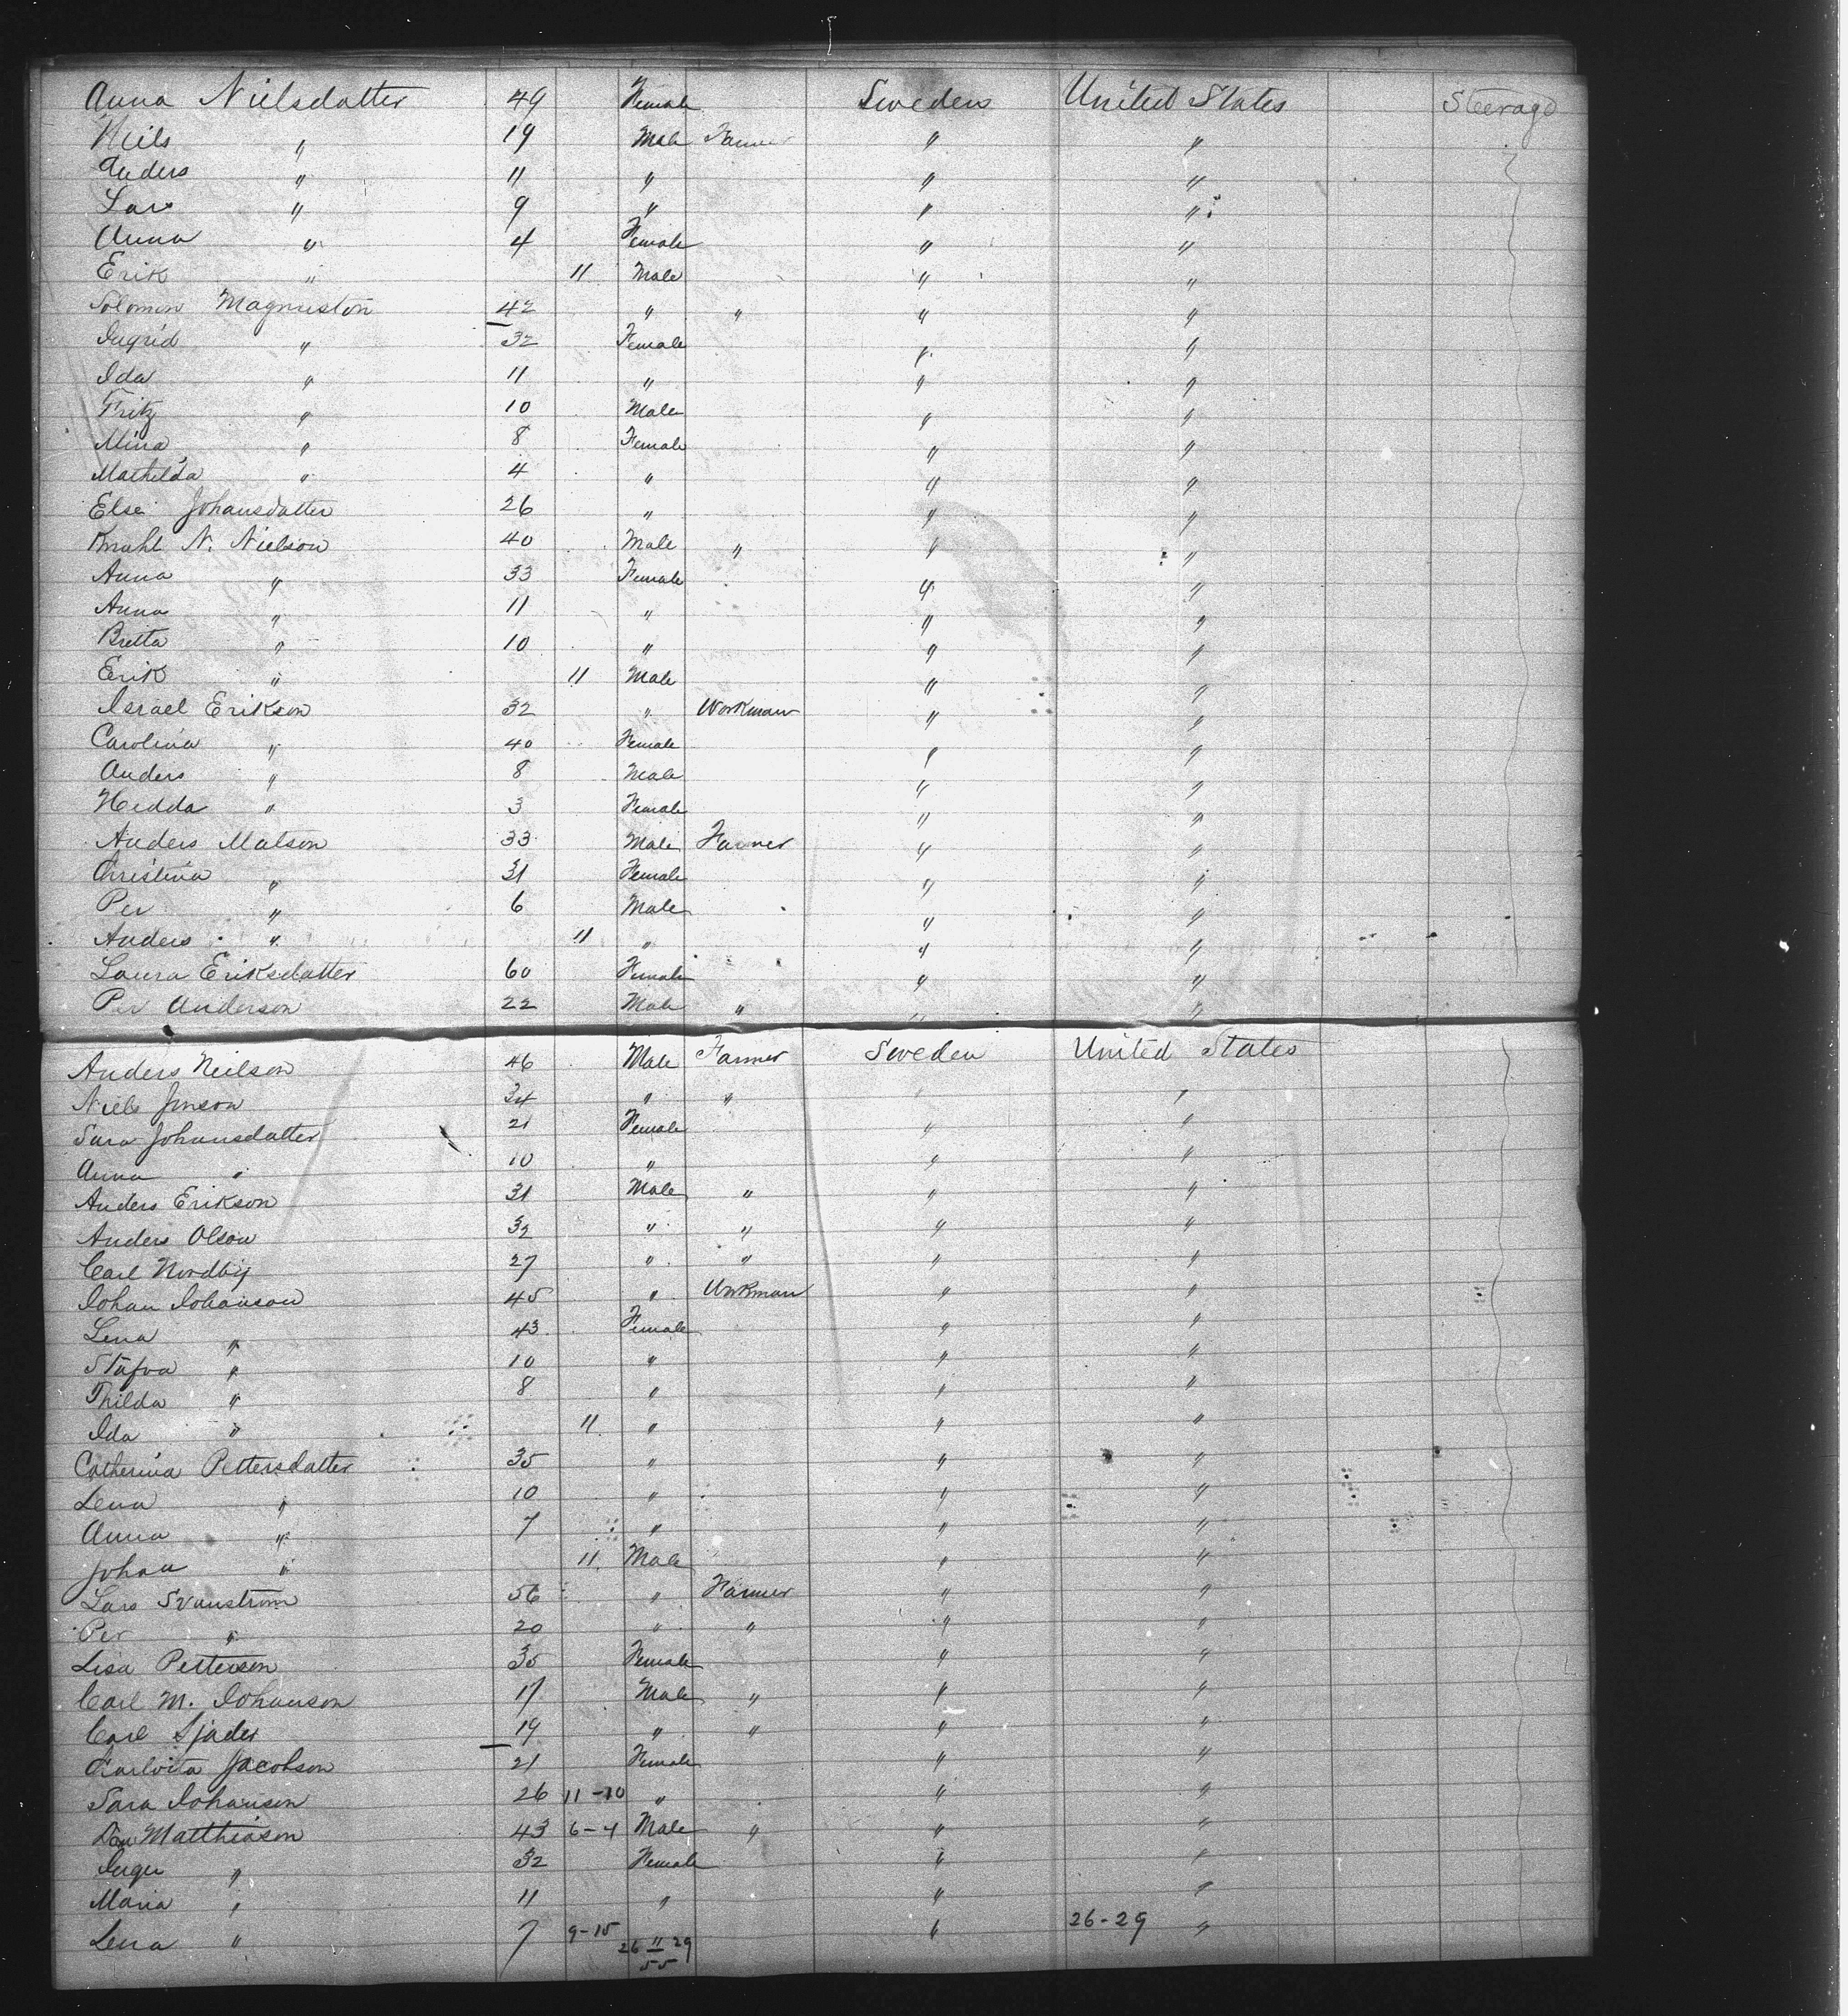 Anna Nielsdatter 49 Female Sweden United States Steerage
Neils " 19 Male Farmer " "
Anders " 11 " " "
Lars " 9 " " "
Anna " 4 Female " "
Erik " 11 Male " "
Solomon Magnuston 42 " " " "
Ingrid " 32 Female " "
Ida " 11 " " "
Fritz " 10 Male " "
Mina " 8 Female " "
Mathilda " 4 " " "
Else Johansdatter 26 " " "
N. Nielson 40 Male " " "
Anna " 33 Female " "
Anna " 11 " " "
Bretta " 10 " " "
Erik " 11 Male " "
Israel Erikson 32 " Workman " "
Carolina " 40 Female " "
Anders " 8 Male " "
Hedda " 3 Female " "
Anders Matson 33 Male Farmer " "
Christina " 31 Female " "
Per " 6 Male " "
Anders " 11 " " "
Laura Eriksdatter 60 Female " "
Per Anderson 22 Male " " "
Anders Neilson 46 Male Farmer Sweden United States
Niels Jonson 34 " " " "
Sara Johansdatter 21 Female " "
Anna " 10 " " "
Anders Erikson 31 Male " " "
Anders Olson 32 " " " "
Carl Nordby 27 " " " "
Johan Johanson 45 " Workman " "
Lena " 43 Female " "
Stafva " 10 " " "
Thilda " 8 " " "
Ida " 11 " " "
Catherina Pettersdatter 35 " " "
Lena " 10 " " "
Anna " 7 " " "
Johan " 11 Male " "
Lars Svanstrom 56 " Farmer " "
Per " 20 " " " "
Lisa Petterson 35 Female " "
Carl M. Johanson 17 Male " " "
Carl Sjader 19 " " " "
Jacobson 21 Female " "
Sara Johanson 26 11-10 " " "
Matthiason 43 6-4 Male " " "
Inger " 32 Female " "
Maria " 11 " " "
Lena " 7 9-15 " " 26-29 "
26 29
55